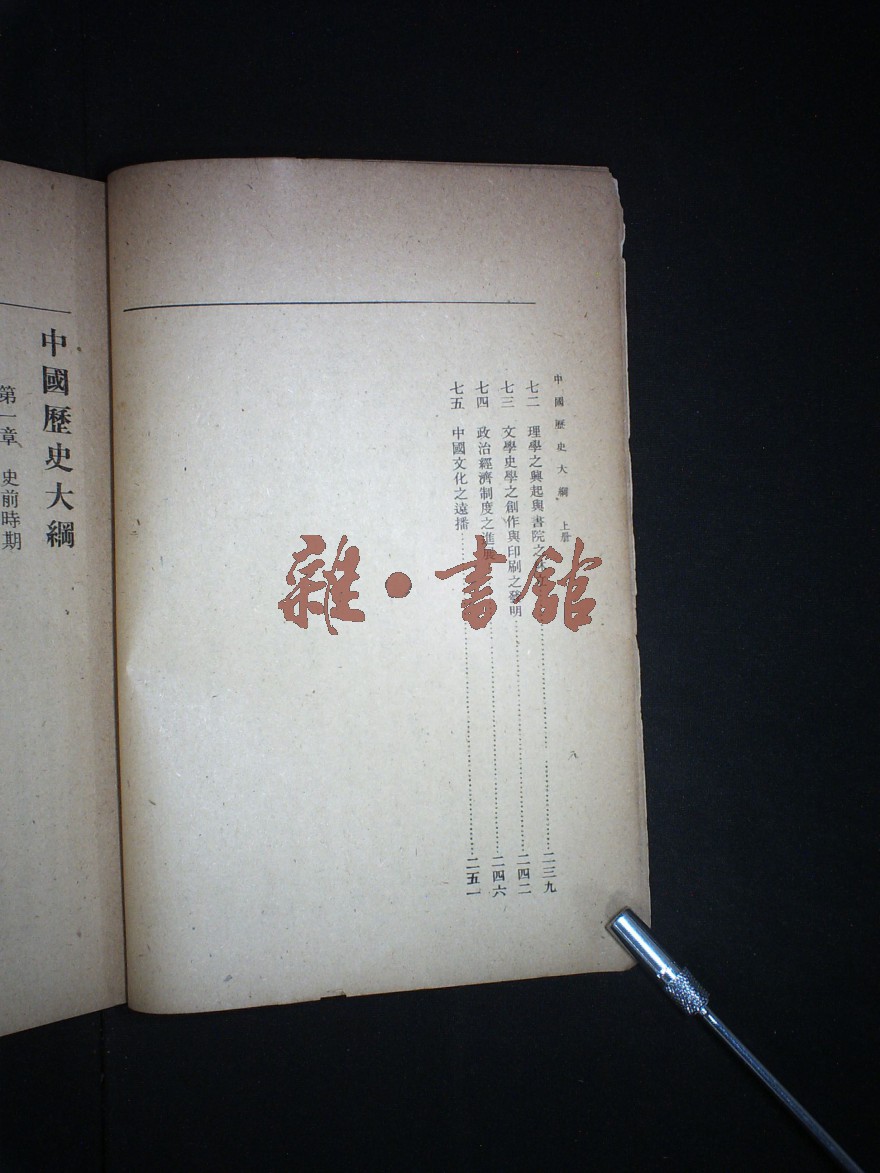 中國歷史大綱 上册
八
七二 理學之興起與書院之 二三九
七三 文學史學之創作與印刷之發明 二四二
七四 政治經濟制度之進 二四六
七五 中國文化之遠播 二五一
中國歷史大綱
第一章 史前時期
雜·書館